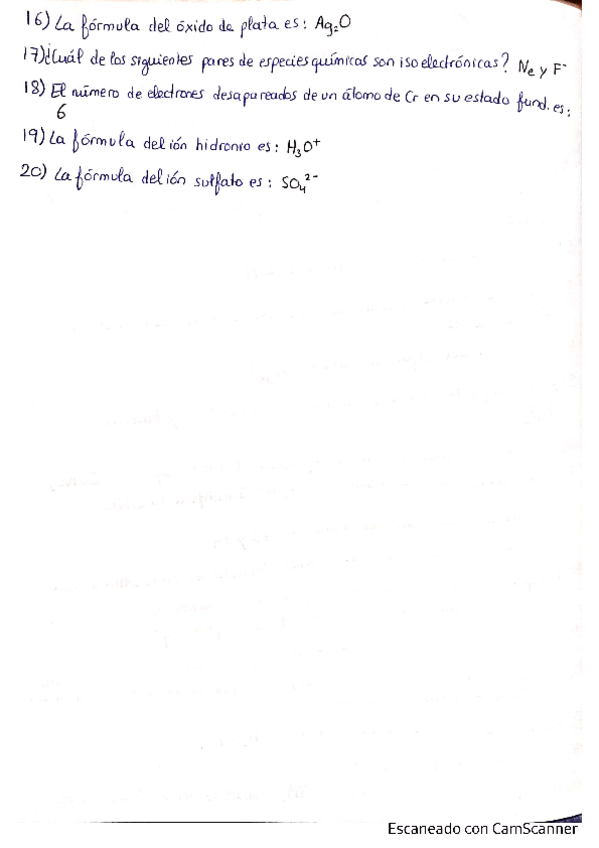 16) La fórmula del óxido de plata es: Ag₂O
17) ¿Cuál de los siguientes pares de especies químicas son isoelectrónicas? Ne y F⁻
18) El número de electrones desapareados de un átomo de Cr en su estado fund. es:
6
19) La fórmula del ión hidronio es: H₃O⁺
20) La fórmula del ión sulfato es: SO₄²⁻
Escaneado con CamScanner